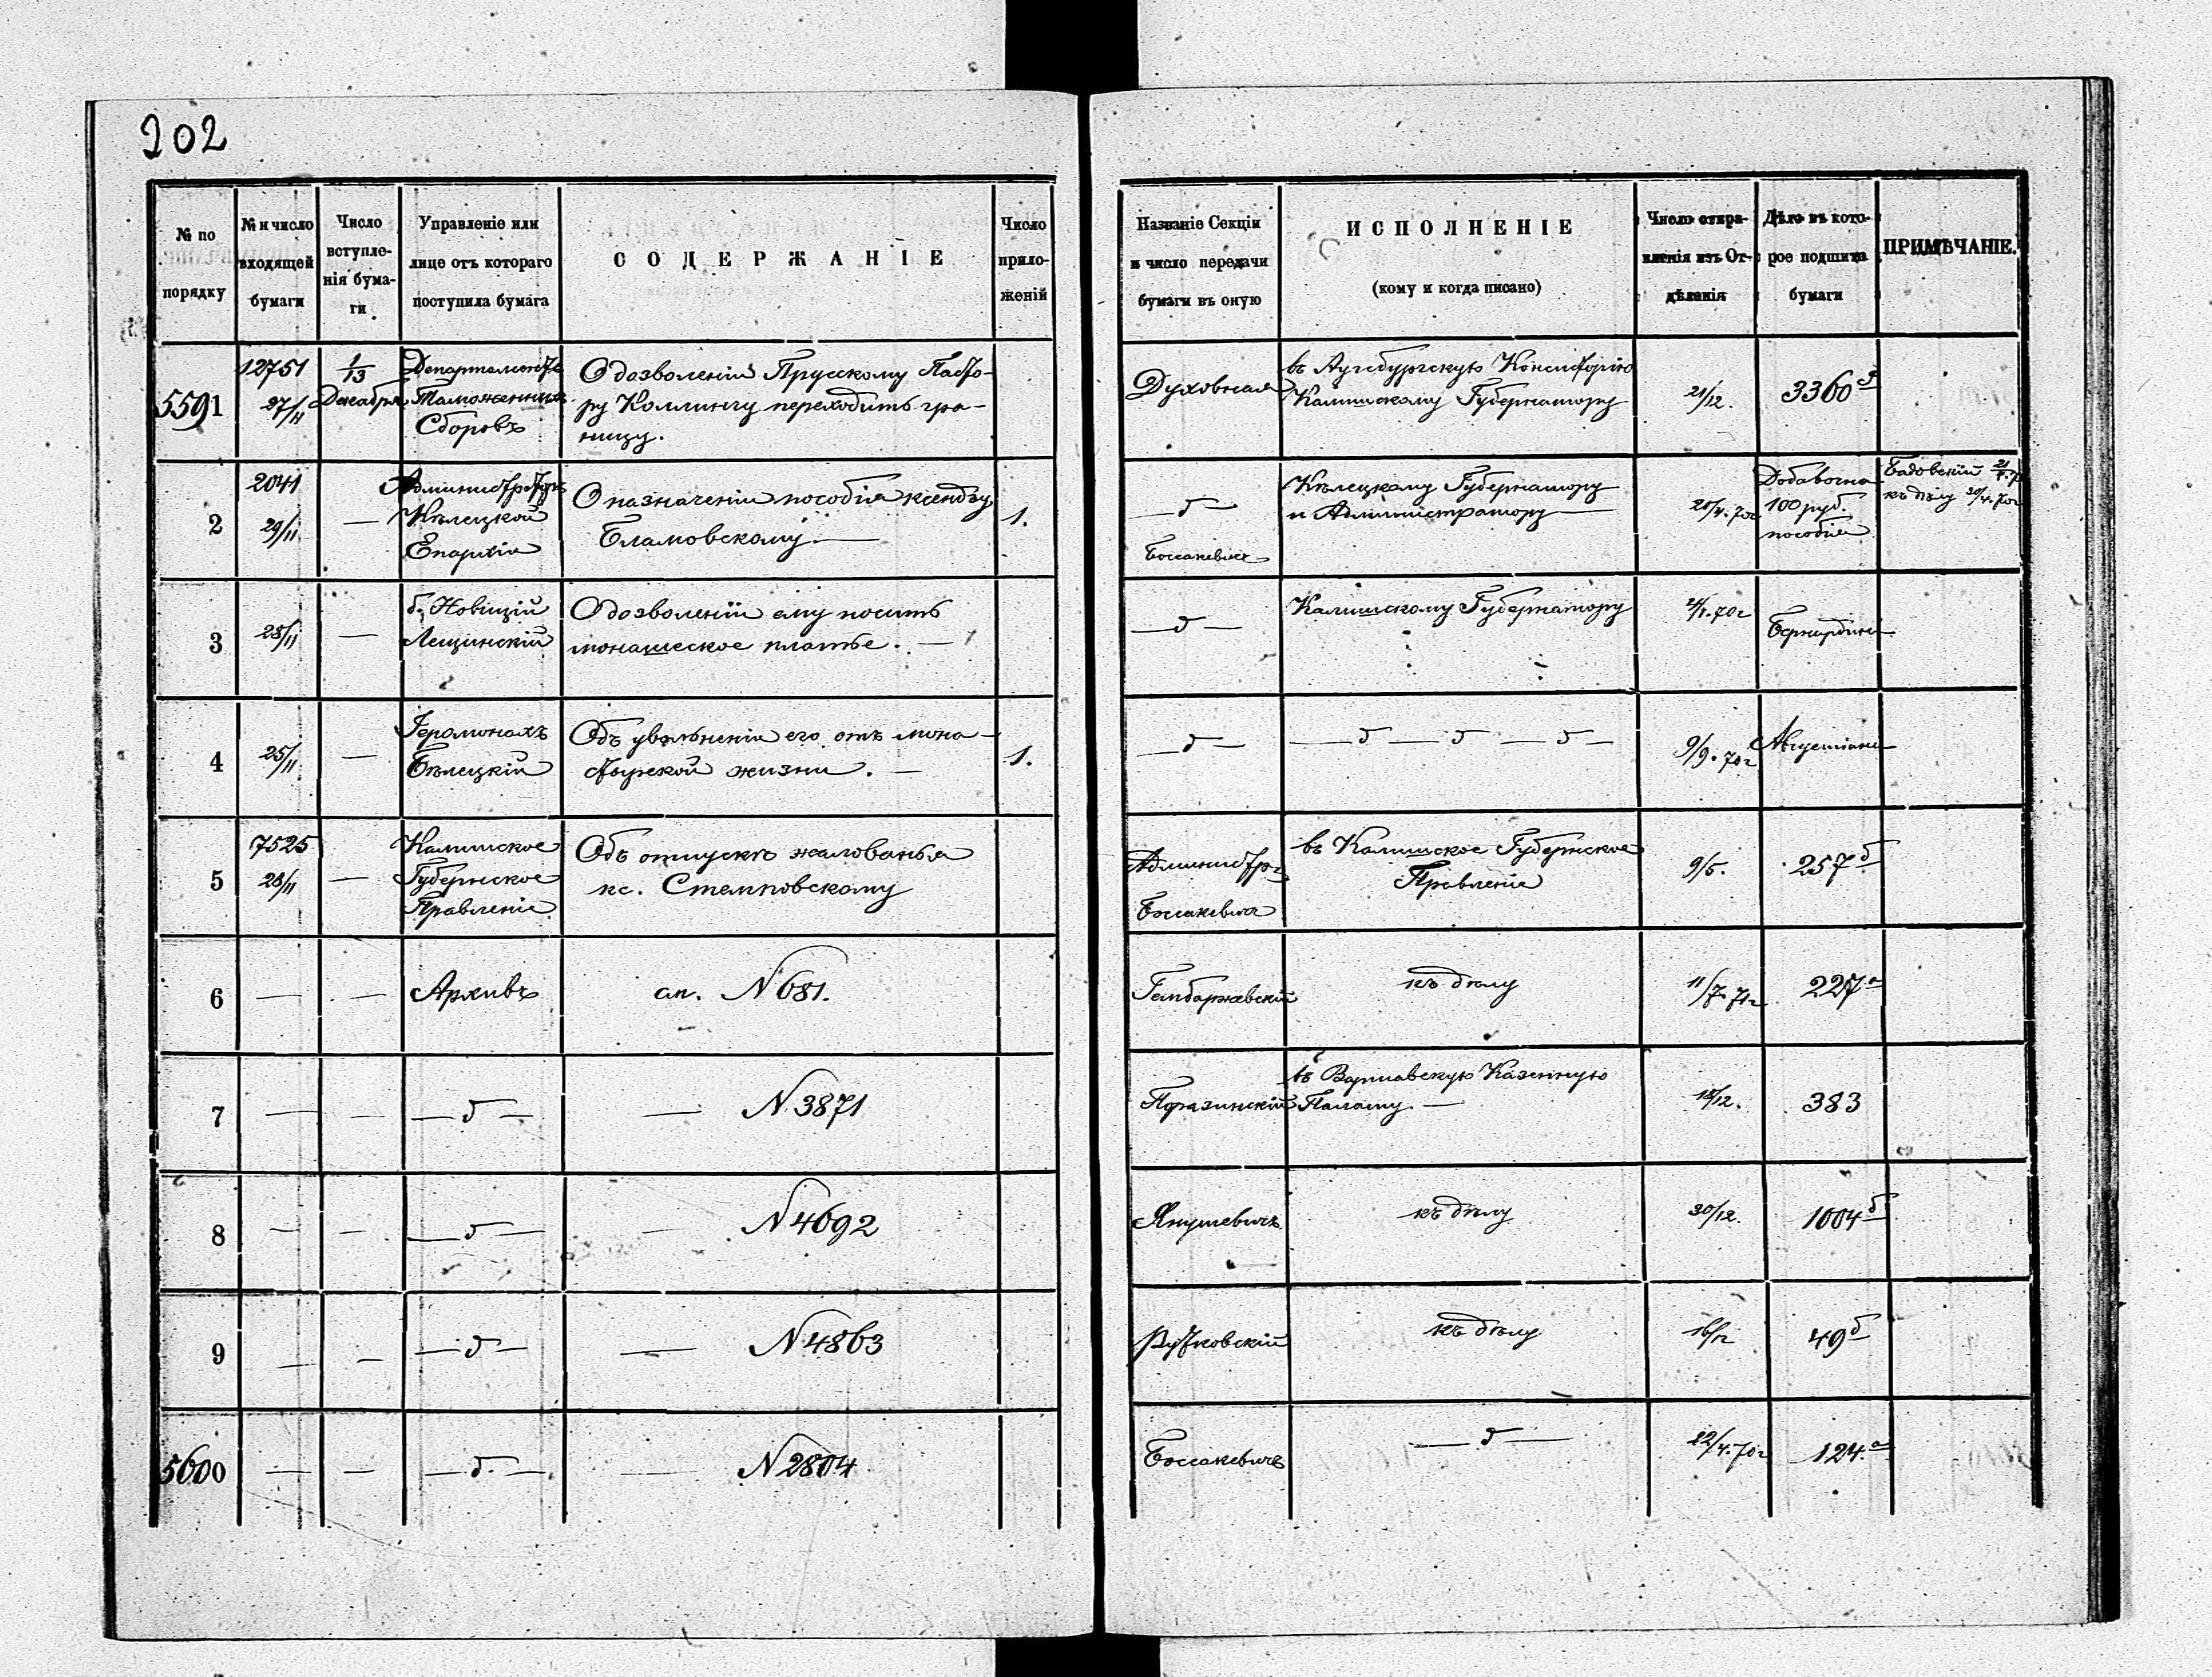 202
№ по порядку
№ и число входящей бумаги
Число вступленія бумаги
Управленіе или лице отъ котораго поступила бумага
СОДЕРЖАНІЕ
Число приложеній
Названіе Секціи и число передачи бумаги въ оную
ИСПОЛНЕНІЕ
(кому и когда писано)
Число отправленія изъ Отдѣленія
Дѣло въ которое подшита бумаги
ПРИМѢЧАНІЕ.
5591
12751
27/11
1/13
Декабря
Департаментъ
Таможенныхъ
Сборовъ
О дозволеніи Прусскому Пасто-
ру Коллингу переходить гра-
ницу.
Духовная
въ Аугсбургскую Консисторію
Калишскому Губернатору
21/12.
3360
2
2041
29/11
—
Администраторъ
Кѣлецкой
Епархіи
О назначеніи пособія ксендзу
Бламовскому. —
1.
— д —
Боссакевичъ
Кѣлецкому Губернатору
и Администратору —
20/4. 70г
Добавочна
100 руб.
пособія
къ дѣлу 20/4. 70г
3
28/11
—
б. Новицій
Лещинскій
О дозволеніи ему носить
монашеское платье. —
— д —
Калишскому Губернатору
70г
Бернардины
4
25/11
—
Іеромонахъ
Бѣлецкій
Объ увольненіи его отъ мона-
стырской жизни. —
1.
— д —
— д — д — д —
9/9. 70г
5
7525
28/11
—
Калишское
Губернское
Правленіе
Объ отпускѣ жалованья
кс. Стемповскому
Администр.
Боссакевичъ
въ Калишское Губернское
Правленіе
9/5.
257 б
6
—
—
Архивъ
ст. N 681.
къ дѣлу
11/7. 71г
227 а
7
—
—
— д —
— N 3871
Поразинскій
въ Варшавскую Казенную
Палату. —
15/12.
383
8
—
—
— д —
— N 4692
Янушевичъ
къ дѣлу
30/12.
1004 б
9
—
—
— д —
— N 4863
Рутковскій
къ дѣлу
16/12
49 б
5600
—
—
— д —
— N 2804
Боссакевичъ
— д —
22/4. 70г
124 а